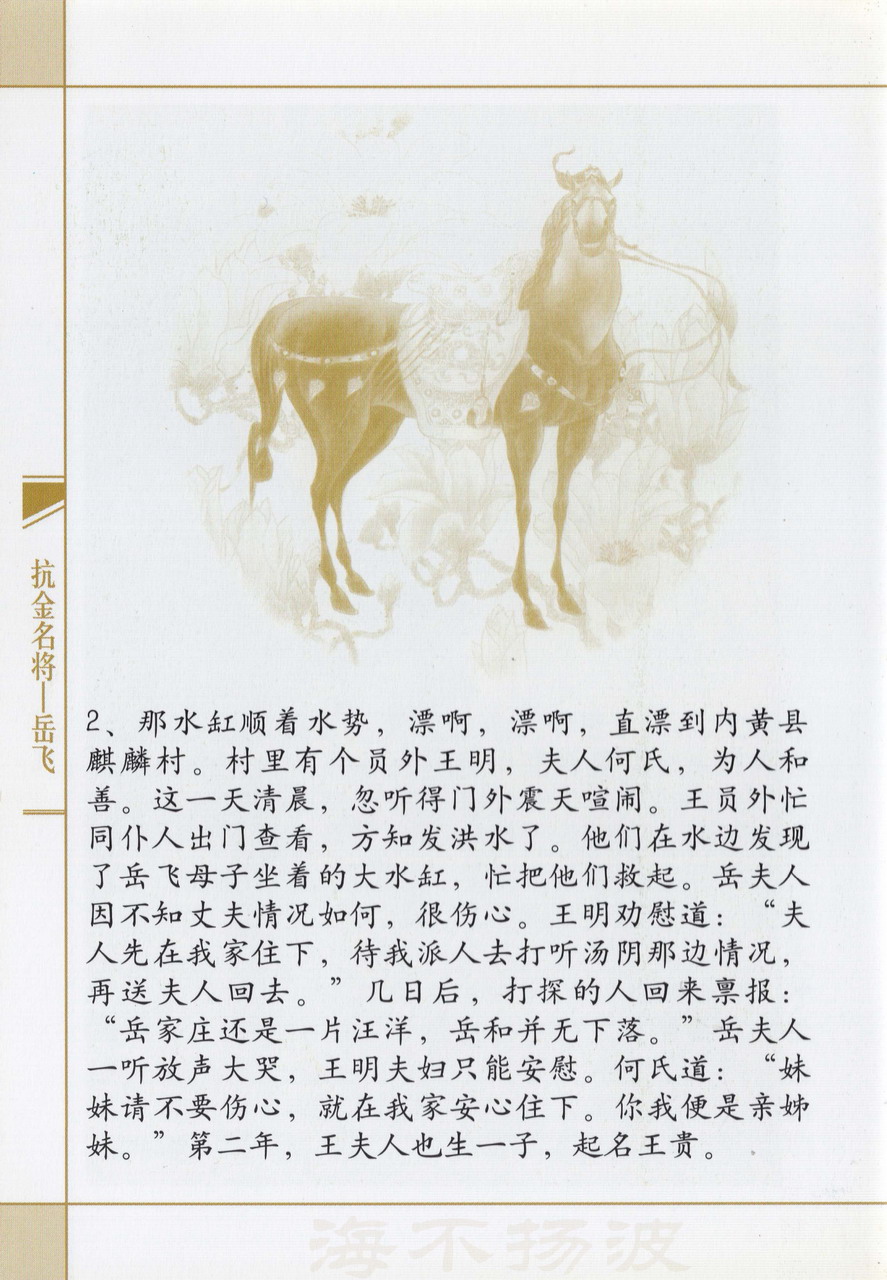 抗金名将—岳飞
2、那水缸顺着水势，漂啊，漂啊，直漂到内黄县
麒麟村。村里有个员外王明，夫人何氏，为人和
善。这一天清晨，忽听得门外震天喧闹。王员外忙
同仆人出门查看，方知发洪水了。他们在水边发现
了岳飞母子坐着的大水缸，忙把他们救起。岳夫人
因不知丈夫情况如何，很伤心。王明劝慰道：“夫
人先在我家住下，待我派人去打听汤阴那边情况，
再送夫人回去。”几日后，打探的人回来禀报：
“岳家庄还是一片汪洋，岳和并无下落。”岳夫人
一听放声大哭，王明夫妇只能安慰。何氏道：“妹
妹请不要伤心，就在我家安心住下。你我便是亲姊
妹。”第二年，王夫人也生一子，起名王贵。
海不扬波